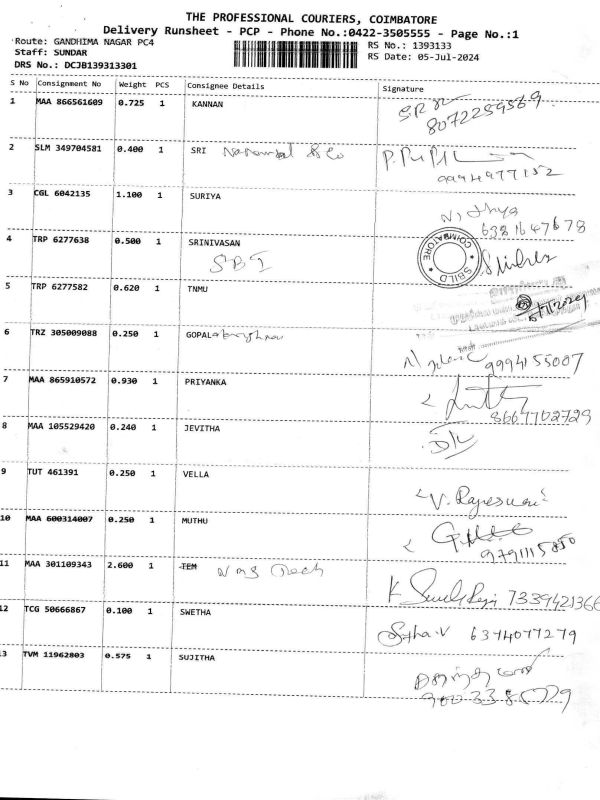 THE PROFESSIONAL COURIERS, COIMBATORE
Delivery Runsheet - PCP - Phone No.:0422-3505555 - Page No.:1
Route: GANDHIMA NAGAR PC4 RS No.: 1393133
Staff: SUNDAR RS Date: 05-Jul-2024
DRS No.: DCJB139313301
S No Consignment No Weight PCS Consignee Details Signature
1 MAA 866561609 0.725 1 KANNAN
8072259569
2 SLM 349704581 0.400 1 SRI
9994977152
3 CGL 6042135 1.100 1 SURIYA Nithya
6381647678
4 TRP 6277638 0.500 1 SRINIVASAN
SBI
COIMBATORE SSILD
5 TRP 6277582 0.620 1 TNMU
6 TRZ 305009088 0.250 1 GOPAL
9994155007
7 MAA 865910572 0.930 1 PRIYANKA
8667702729
8 MAA 105529420 0.240 1 JEVITHA
9 TUT 461391 0.250 1 VELLA
V. Rajeswari
10 MAA 600314007 0.250 1 MUTHU
9791115850
11 MAA 301109343 2.600 1 TEM Nms Tech
7339421366
12 TCG 50666867 0.100 1 SWETHA
6374077279
13 TVM 11962803 0.575 1 SUJITHA